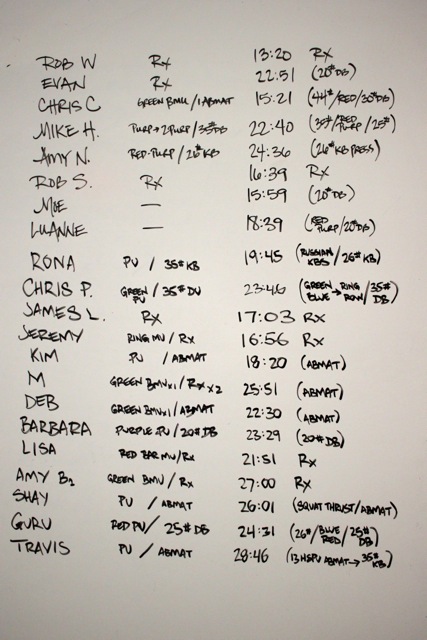 ROB W Rx 13:20 Rx
EVAN Rx 22:51 (20# DB)
CHRIS C GREEN BMU / 1 ABMAT 15:21 (44#/RED/30# DB)
MIKE H. PURP→2PURP/35# DB 22:40 (35#/RED PURP/25#)
AMY N. RED-PURP/26# KB 24:36 (26# KB PRESS)
ROB S. Rx 16:39 Rx
MOE — 15:59 (20# DB)
LUANNE — 18:39 (RED PURP/20# DB)
RONA PU / 35# KB 19:45 (RUSSIAN KBS/26# KB)
CHRIS P. GREEN PU / 35# DU 23:46 (GREEN BLUE → RING ROW/35# DB)
JAMES L. Rx 17:03 Rx
JEREMY RING MU / Rx 16:56 Rx
KIM PU / ABMAT 18:20 (ABMAT)
M GREEN BMUx1/Rx x2 25:51 (ABMAT)
DEB GREEN BMUx1/ABMAT 22:30 (ABMAT)
BARBARA PURPLE PU / 20# DB 23:29 (20# DB)
LISA RED BAR MU/Rx 21:51 Rx
AMY B2 GREEN BMU / Rx 27:00 Rx
SHAY PU / ABMAT 26:01 (SQUAT THRUST/ABMAT)
GURU RED PU/ 25# DB 24:31 (26#/BLUE RED/25# DB)
TRAVIS PU / ABMAT 28:46 (13 HSPU ABMAT → 35# KB)